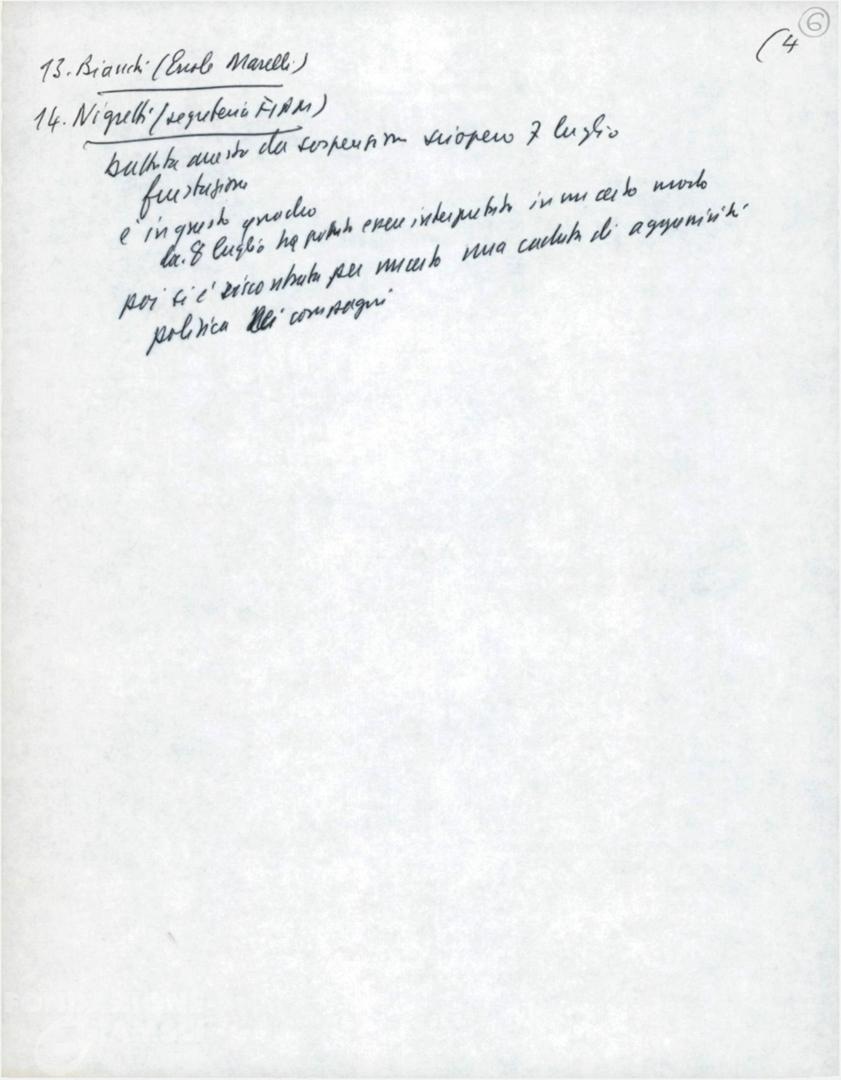 6
(4
13. Bianchi (Ercole Marelli)
14. Nigretti (segreteria FIOM)
battuta da sospensione sciopero 7 luglio
frustrazione
è in questo quadro
la 8 luglio ha potuto essere interpretata in un certo modo
poi si è riscontrata per un certo una caduta di aggressività
politica dei compagni